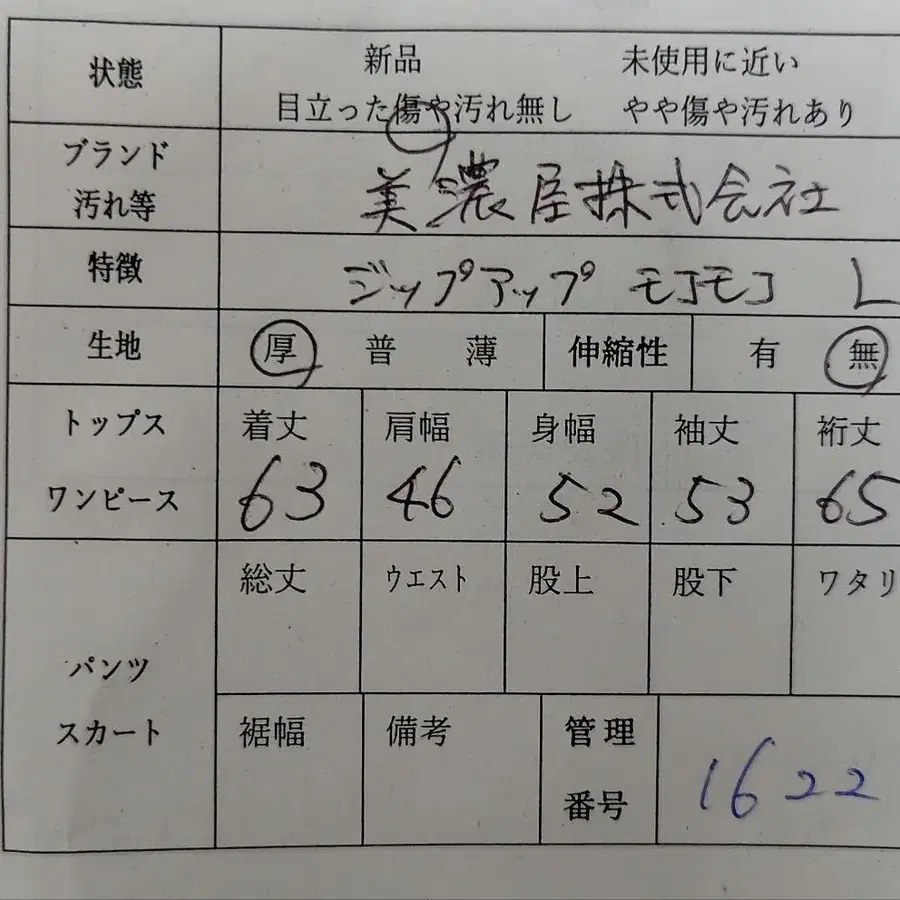 状態 新品 未使用に近い
目立った傷や汚れ無し やや傷や汚れあり
ブランド
汚れ等 美濃屋株式会社
特徴 ジップアップ モコモコ L
生地 厚 普 薄 伸縮性 有 無
トップス 着丈 肩幅 身幅 袖丈 裄丈
ワンピース 63 46 52 53 65
総丈 ウエスト 股上 股下 ワタリ
パンツ
スカート 裾幅 備考 管理
番号 1622